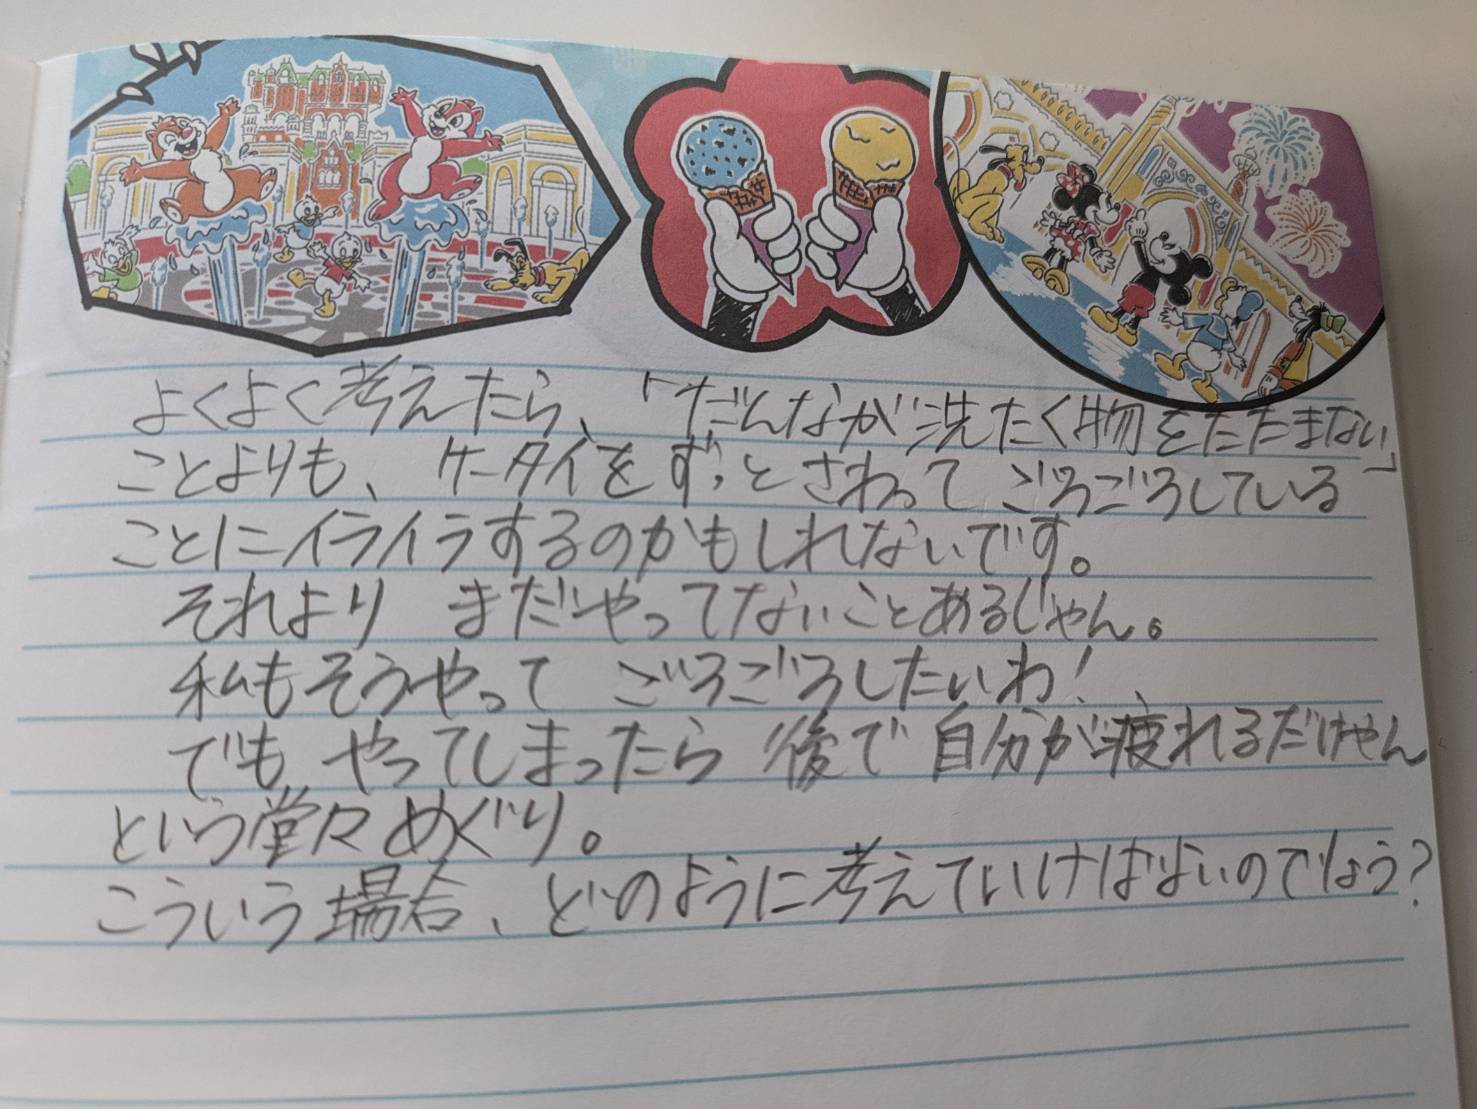 よくよく考えたら、「だんなが洗たく物をたたまない」
ことよりも、ケータイをずっとさわってごろごろしている
ことにイライラするのかもしれないです。
それより まだやってないことあるじゃん。
私もそうやって ごろごろしたいわ!
でも やってしまったら 後で自分が疲れるだけやん
という堂々めぐり。
こういう場合、どのように考えていけばよいのでしょう?